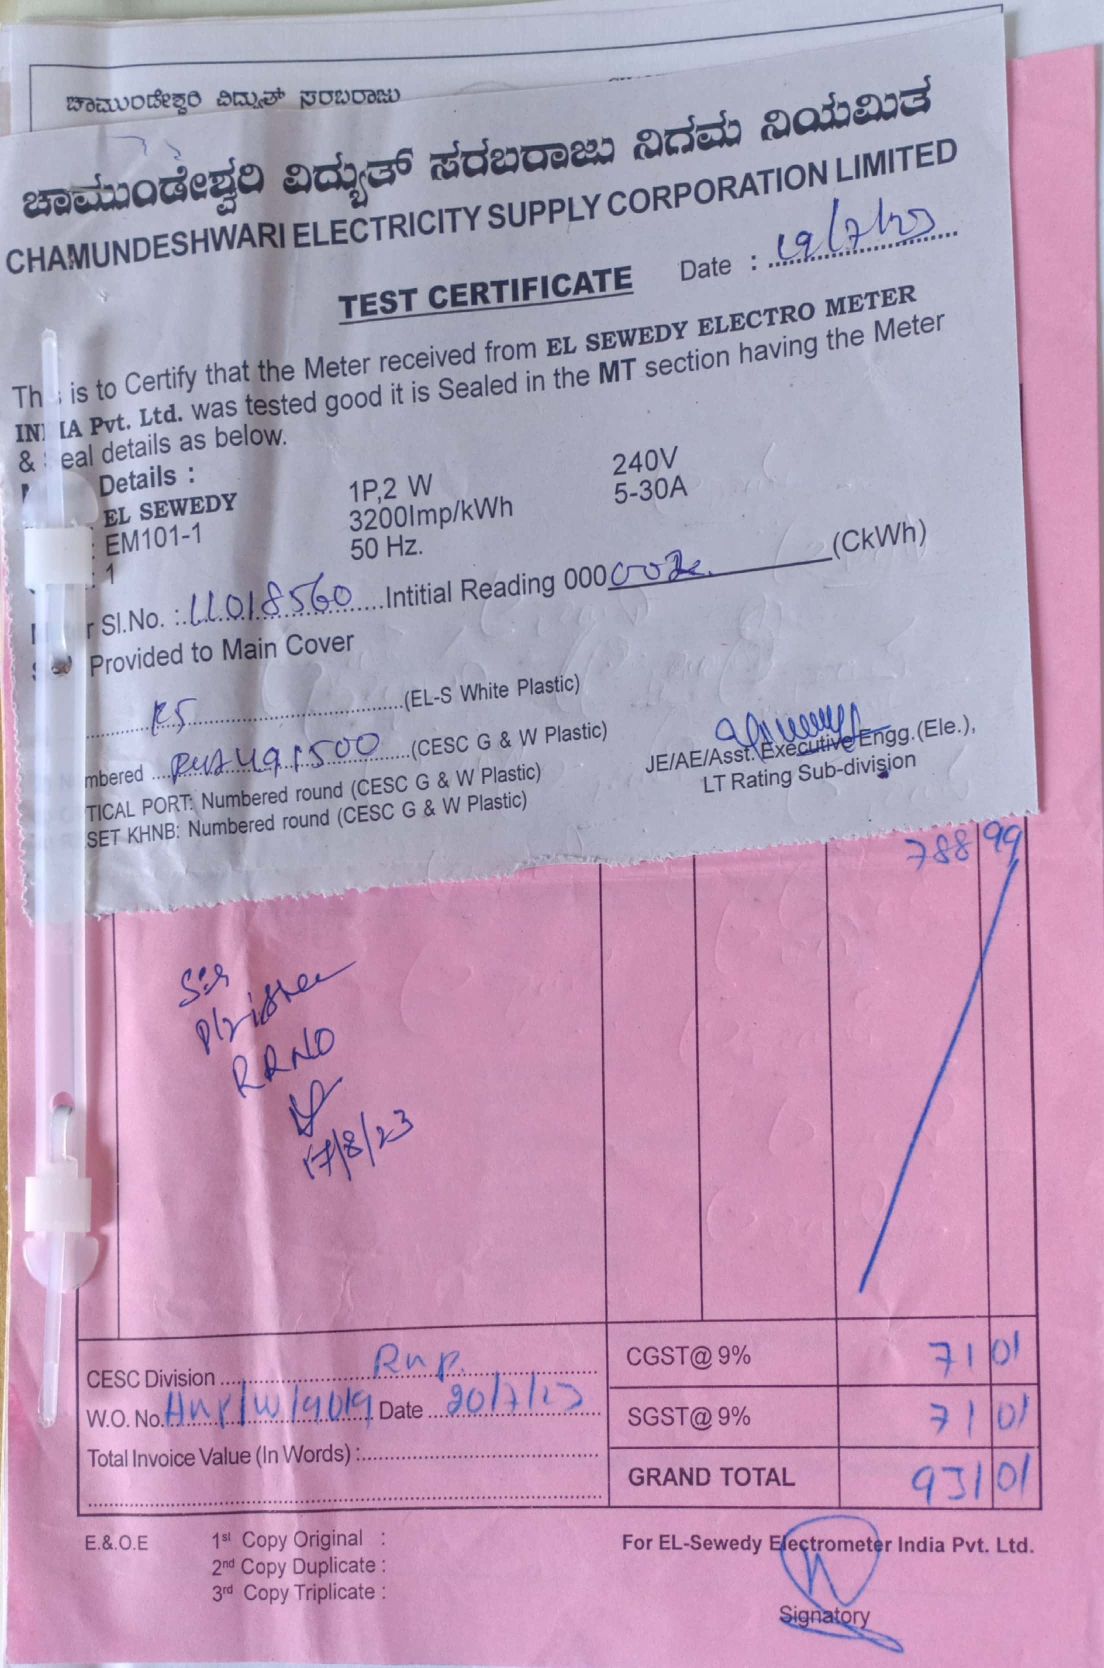 ಚಾಮುಂಡೇಶ್ವರಿ ವಿದ್ಯುತ್ ಸರಬರಾಜು
ಚಾಮುಂಡೇಶ್ವರಿ ವಿದ್ಯುತ್ ಸರಬರಾಜು ನಿಗಮ ನಿಯಮಿತ
CHAMUNDESHWARI ELECTRICITY SUPPLY CORPORATION LIMITED
Date : 19/7/23
TEST CERTIFICATE
is to Certify that the Meter received from EL SEWEDY ELECTRO METER
Pvt. Ltd. was tested good it is Sealed in the MT section having the Meter
& eal details as below.
Details :
EL SEWEDY 1P,2 W 240V
: EM101-1 3200Imp/kWh 5-30A
: 1 50 Hz.
r Sl.No. : 11018560 Intitial Reading 000 (CkWh)
Provided to Main Cover
(EL-S White Plastic)
mbered (CESC G & W Plastic)
TICAL PORT: Numbered round (CESC G & W Plastic)
SET KHNB: Numbered round (CESC G & W Plastic)
JE/AE/Asst. Executive Engg.(Ele.),
LT Rating Sub-division
788 99
RRNO
17/8/23
CESC Division
W.O. No. Date 20/7/23
Total Invoice Value (In Words) :
CGST@ 9% 71 01
SGST@ 9% 71 01
GRAND TOTAL 931 01
E.&.O.E 1st Copy Original :
2nd Copy Duplicate :
3rd Copy Triplicate :
For EL-Sewedy Electrometer India Pvt. Ltd.
Signatory